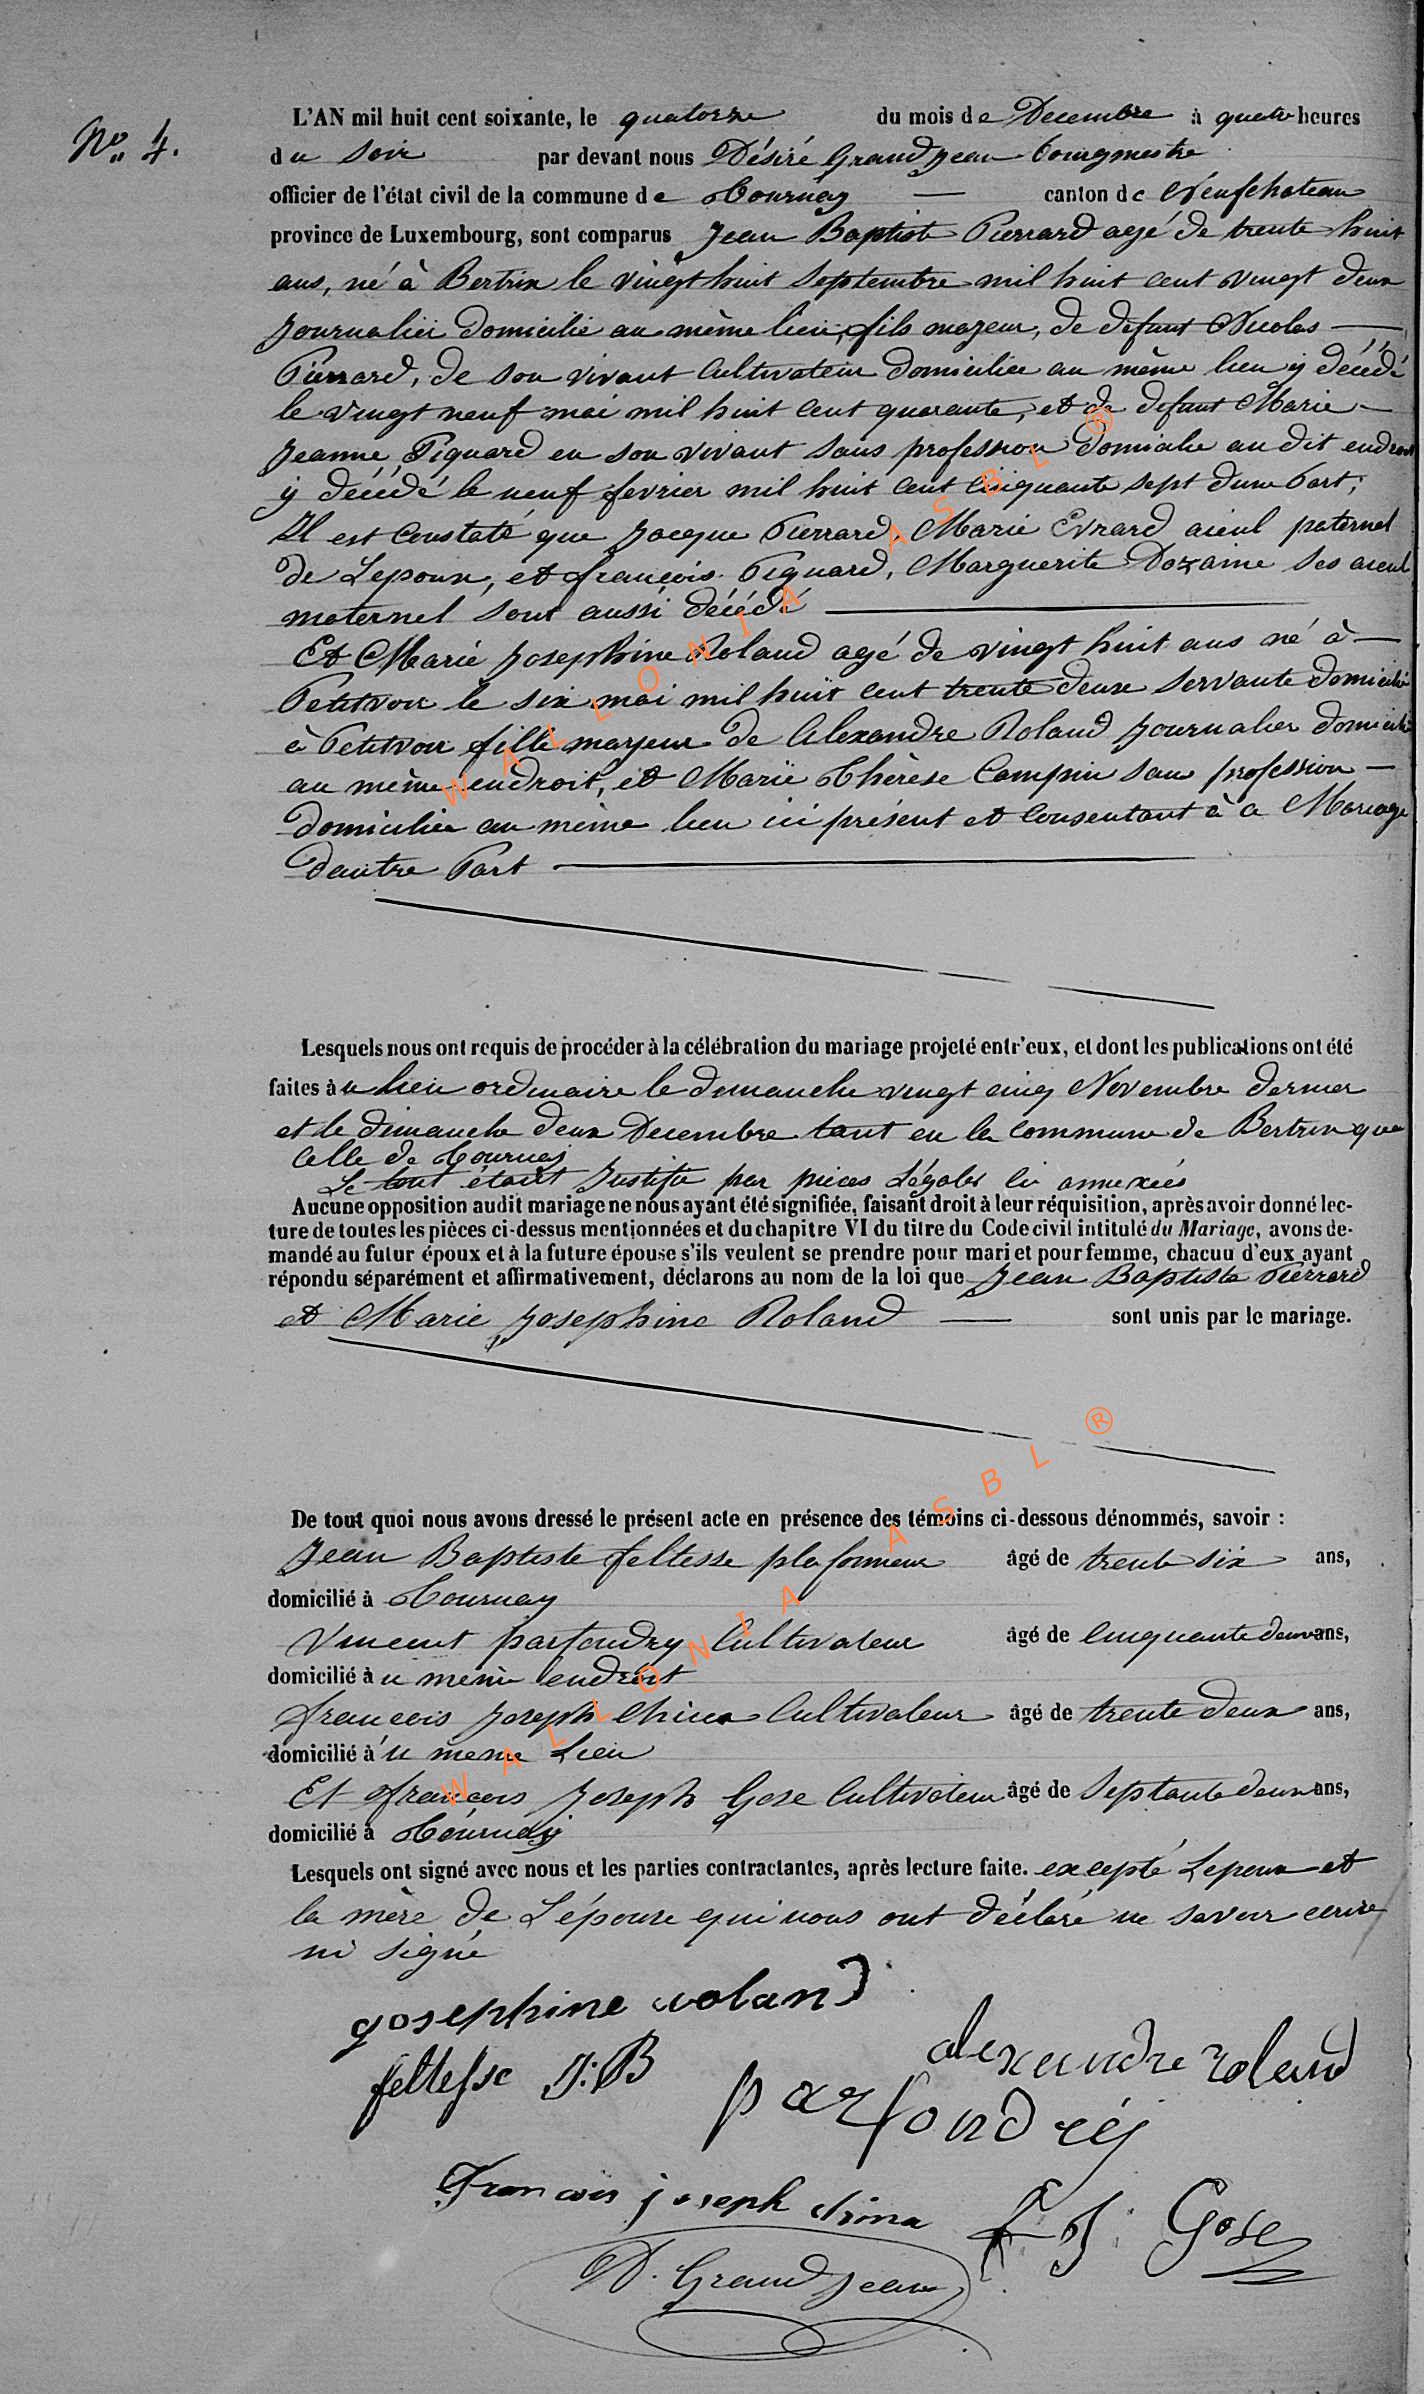 N° 4.
L'AN mil huit cent soixante, le quatorze du mois de Decembre à quatre heures
du soir par devant nous Désiré Grandjean bourgmestre
officier de l'état civil de la commune de Tournay — canton de Neufchateau
province de Luxembourg, sont comparus Jean Baptiste Pierrard agé de trente huit
ans, né à Bertrix le vingt huit Septembre mil huit cent vingt deux
Journalier domicilié au même lieu, fils majeur, de defunt Nicolas —
Pierrard, de son vivant Cultivateur domicilié au même lieu y décédé
le vingt neuf mai mil huit cent quarante, et de defunt Marie —
Jeanne Piquard en son vivant sans profession domicilie au dit endroit
y décédé le neuf fevrier mil huit cent cinquante sept dune Part;
Il est Constaté que Jacque Pierrard, Marie Evrard aieul paternel
de Lepoux, et francois Piquard, Marguerite Dozaine ses aieul
maternel sont aussi décédé
Et Marie Josephine Roland agé de vingt huit ans né à —
Petitvoir le six mai mil huit cent trente deux servante domicilié
à Petitvoir fille majeur de Alexandre Roland Journalier domicilié
au même endroit, et Marie Thérèse Campin sans profession —
domiciliée au même lieu ici présent et Consentant à ce Mariage
dautre Part
Lesquels nous ont requis de procéder à la célébration du mariage projeté entr'eux, et dont les publications ont été
faites au lieu ordinaire le dimanche vingt cinq Novembre dernier
et le dimanche deux Decembre tant en la Commune de Bertrix que
Celle de Tournay
Le tout étant Justifié par pieces Légales ci annexées
Aucune opposition audit mariage ne nous ayant été signifiée, faisant droit à leur réquisition, après avoir donné lec-
ture de toutes les pièces ci-dessus mentionnées et du chapitre VI du titre du Code civil intitulé du Mariage, avons de-
mandé au futur époux et à la future épouse s'ils veulent se prendre pour mari et pour femme, chacun d'eux ayant
répondu séparément et affirmativement, déclarons au nom de la loi que Jean Baptiste Pierrard
et Marie Josephine Roland — sont unis par le mariage.
De tout quoi nous avons dressé le présent acte en présence des témoins ci-dessous dénommés, savoir :
Jean Baptiste feltesse plafonneur âgé de trente six ans,
domicilié à Tournay
Vincent parfondry Cultivateur âgé de Cinquante deux ans,
domicilié au même endroit
francois Joseph China Cultivateur âgé de trente deux ans,
domicilié au meme Lieu
Et francois Joseph Gose Cultivateur âgé de Septante deux ans,
domicilié à Tournay
Lesquels ont signé avec nous et les parties contractantes, après lecture faite. excepté Lepoux et
la mère de L'épouse qui nous ont déclaré ne savoir ecrire
ni signé
josephine roland
alexandre roland
feltesse J:B
parfondréÿ
Francois joseph china
F J: Gose
D. Grandjean
WALLONIA ASBL ®
WALLONIA ASBL ®